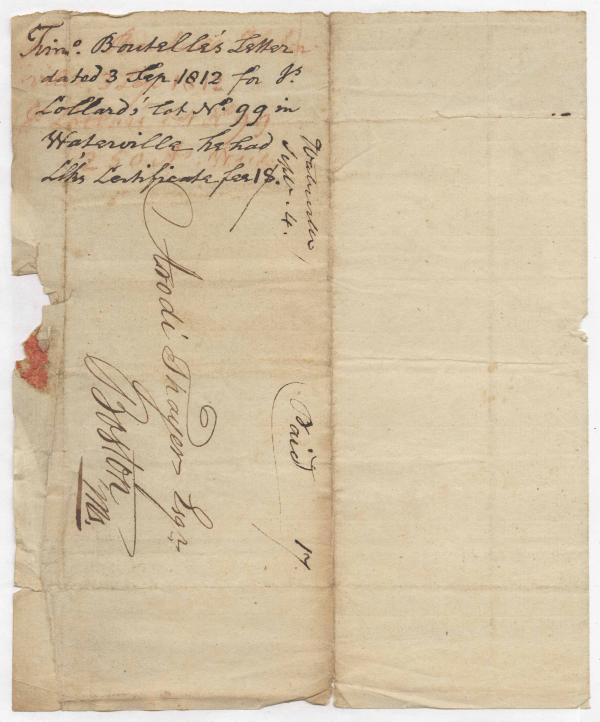 Timo. Boutelle's Letter
dated 3 Sep. 1812 for Js.
Lollard's lot No. 99 in
Waterville he had
Lths Certificate for 18.
Waterville
Sepr. 4.
Arodi Thayer Esqr.
Boston
Ms.
Paid 17